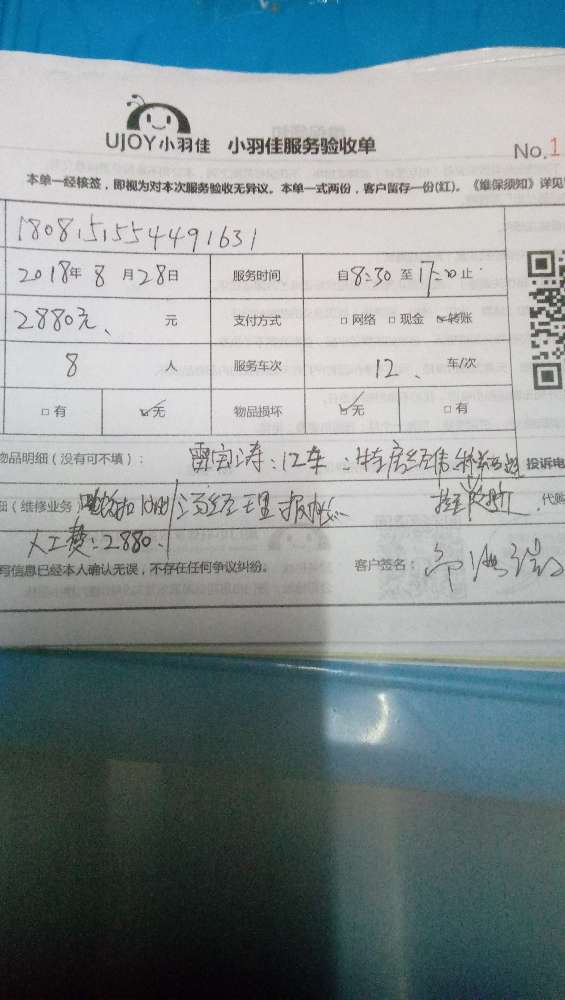 UJOY小羽佳 小羽佳服务验收单
No.1
本单一经核签，即视为对本次服务验收无异议。本单一式两份，客户留存一份(红)。《维保须知》详见
1808151554491631
2018年 8 月28日 服务时间 自8:30 至17:20止
2880元、 元 支付方式 □网络 □现金 ☑转账
8 人 服务车次 12、 车/次
□有 ☑无 物品损坏 ☑无 □有
物品明细（没有可不填）： 雷宝涛：12车 投诉电
细（维修业务） 冯经理报账 代购
人工费：2880、
写信息已经本人确认无误，不存在任何争议纠纷。 客户签名：